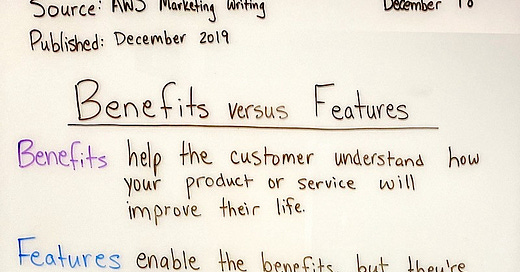 Source: AWS Marketing Writing
December 18
Published: December 2019
Benefits versus Features
Benefits help the customer understand how
your product or service will
improve their life.
Features enable the benefits, but they're